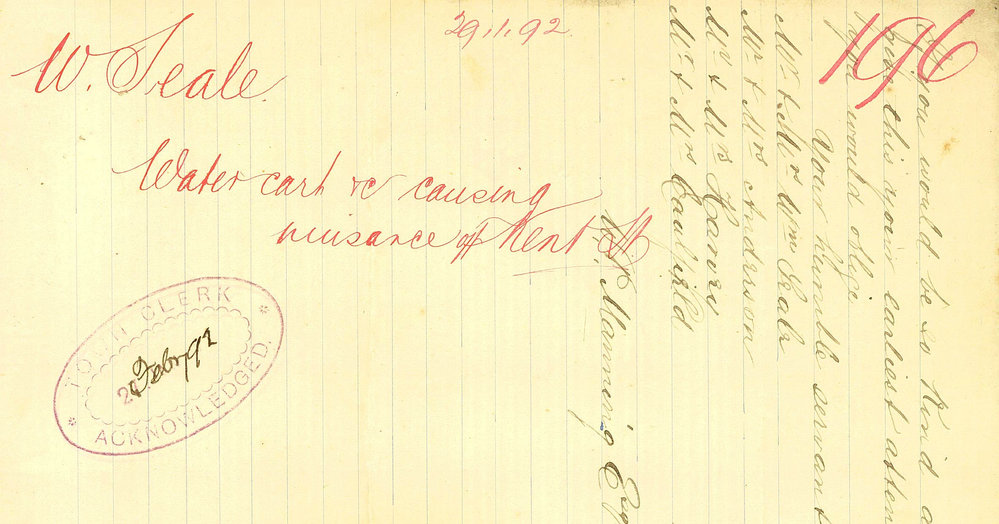 29.1.92.
196
W. Seale
Water cart &c causing
nuisance off Kent St
TOWN CLERK
2 Febry 92
ACKNOWLEDGED.
If you would be so kind a
give this your earliest atten
you would oblige
Your humble servant
Mr & Mrs Wm Seale
Mr & Mrs Anderson
Mr & Mrs Havers
Mr & Mrs Caulfield
W. P. Manning Esq